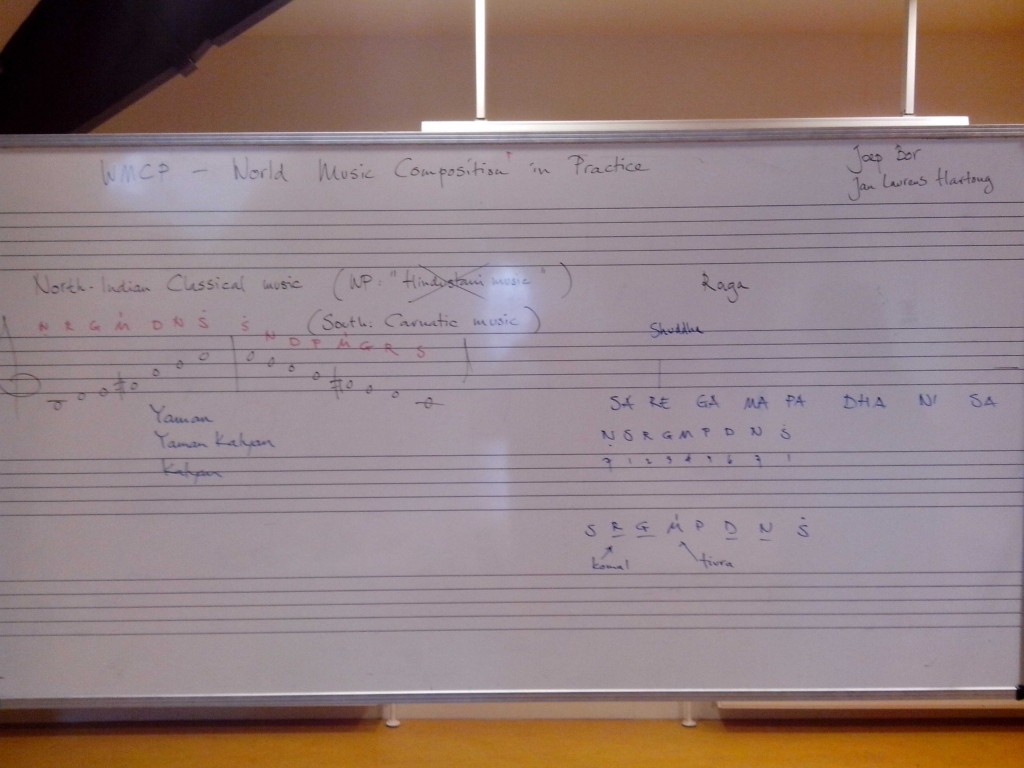 WMCP - World Music Composition in Practice
Joep Bor
Jan Laurens Hartong
North-Indian Classical music (WP: "Hindustani music")
Raga
(South: Carnatic music)
Ṇ R G Ṁ D N Ṡ Ṡ N D P Ṁ G R S
Shuddha
Yaman
Yaman Kalyan
Kalyan
SA RE GA MA PA DHA NI SA
Ṇ S R G M P D N Ṡ
7 1 2 3 4 5 6 7 1
S R G Ṁ P D N Ṡ
komal tivra